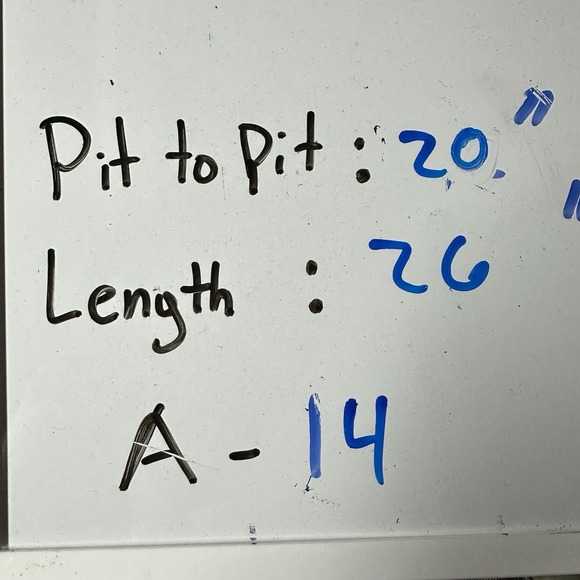 Pit to Pit : 20"
Length : 26"
A - 14